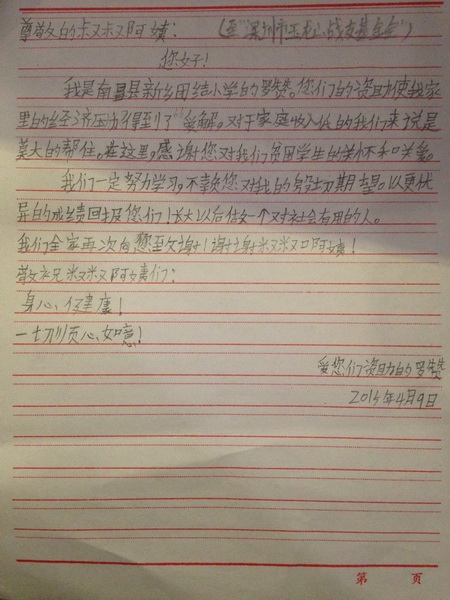 尊敬的叔叔阿姨： （至“深圳市 战友基金会”）
您好！
我是南昌县新乡田结小学的罗赞。您们的资助使我家
里的经济压力得到了缓解。对于家庭收入低的我们来说是
莫大的帮住。在这里，感谢您对我们贫困学生的关怀和关爱。
我们一定努力学习，不负您对我的殷切期望。以更优
异的成绩回报您们！长大以后做一个对社会有用的人。
我们全家再次向您至致谢！谢谢叔叔和阿姨！
敬祝叔叔阿姨们：
身心健康！
一切顺心如意！
受您们资助的罗赞
年4月9日
第 页